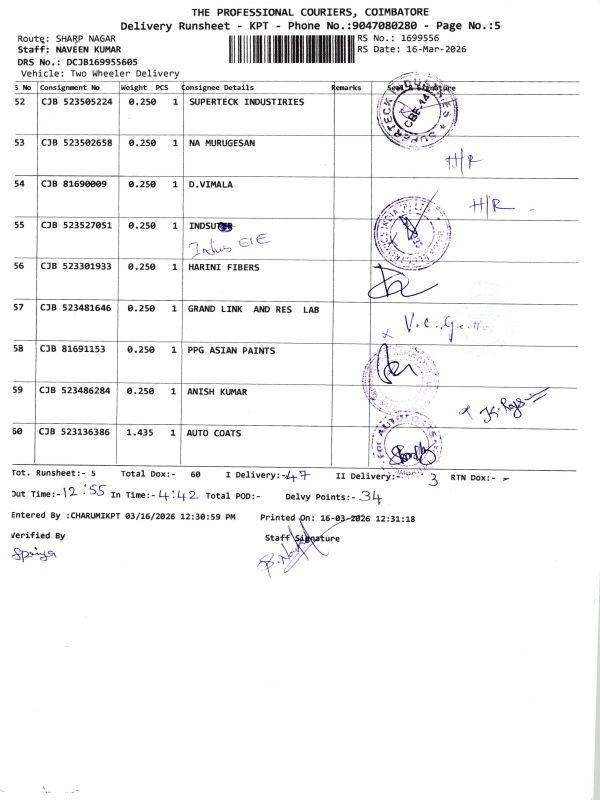 THE PROFESSIONAL COURIERS, COIMBATORE
Delivery Runsheet - KPT - Phone No.:9047080280 - Page No.:5
Route: SHARP NAGAR
RS No.: 1699556
Staff: NAVEEN KUMAR
RS Date: 16-Mar-2026
DRS No.: DCJB169955605
Vehicle: Two Wheeler Delivery
S No Consignment No Weight PCS Consignee Details Remarks Seal & Signature
52 CJB 523505224 0.250 1 SUPERTECK INDUSTIRIES
SUPERTECK INDUSTRIES
CBE-14
53 CJB 523502658 0.250 1 NA MURUGESAN
H/R
54 CJB 81690009 0.250 1 D.VIMALA
H/R -
55 CJB 523527051 0.250 1 INDSU
Indus EIE
56 CJB 523301933 0.250 1 HARINI FIBERS
57 CJB 523481646 0.250 1 GRAND LINK AND RES LAB
x V.C.
58 CJB 81691153 0.250 1 PPG ASIAN PAINTS
59 CJB 523486284 0.250 1 ANISH KUMAR
60 CJB 523136386 1.435 1 AUTO COATS
Tot. Runsheet:- 5 Total Dox:- 60 I Delivery:- 47 II Delivery:- 3 RTN Dox:- -
Out Time:- 12:55 In Time:- 4:42 Total POD:- Delvy Points:- 34
Entered By :CHARUMIKPT 03/16/2026 12:30:59 PM Printed On: 16-03-2026 12:31:18
Verified By Staff Signature